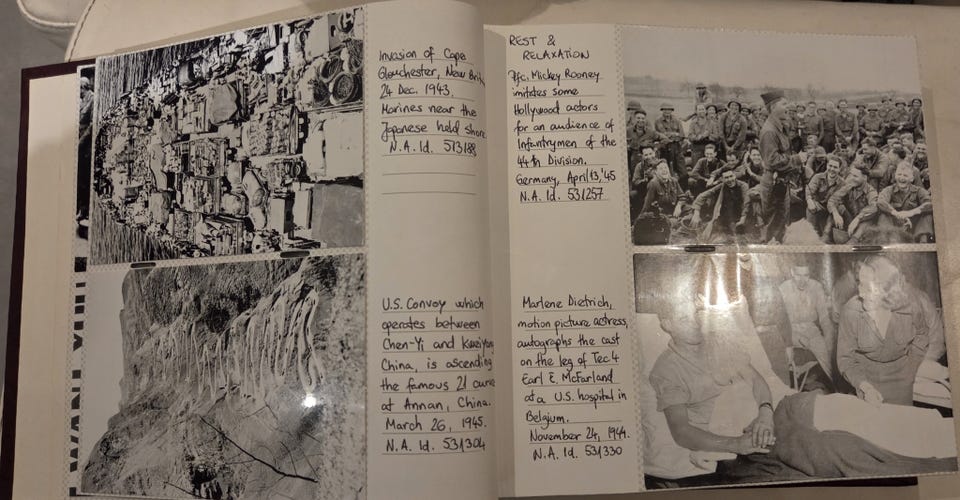 Invasion of Cape
Glouchester, New Brit
24 Dec. 1943.
Marines near the
Japanese held shore
N.A. Id. 513188
U.S. Convoy which
operates between
Chen-Yi and Kweiyang
China, is ascending
the famous 21 curve
at Annan, China.
March 26, 1945.
N.A. Id. 531304
REST &
RELAXATION
Pfc. Mickey Rooney
imitates some
Hollywood actors
for an audience of
Infantrymen of the
44th Division.
Germany, April 13, '45
N.A. Id. 531257
Marlene Dietrich,
motion picture actress,
autographs the cast
on the leg of Tec.4
Earl E. McFarland
at a U.S. hospital in
Belgium.
November 24, 1944.
N.A. Id. 531330